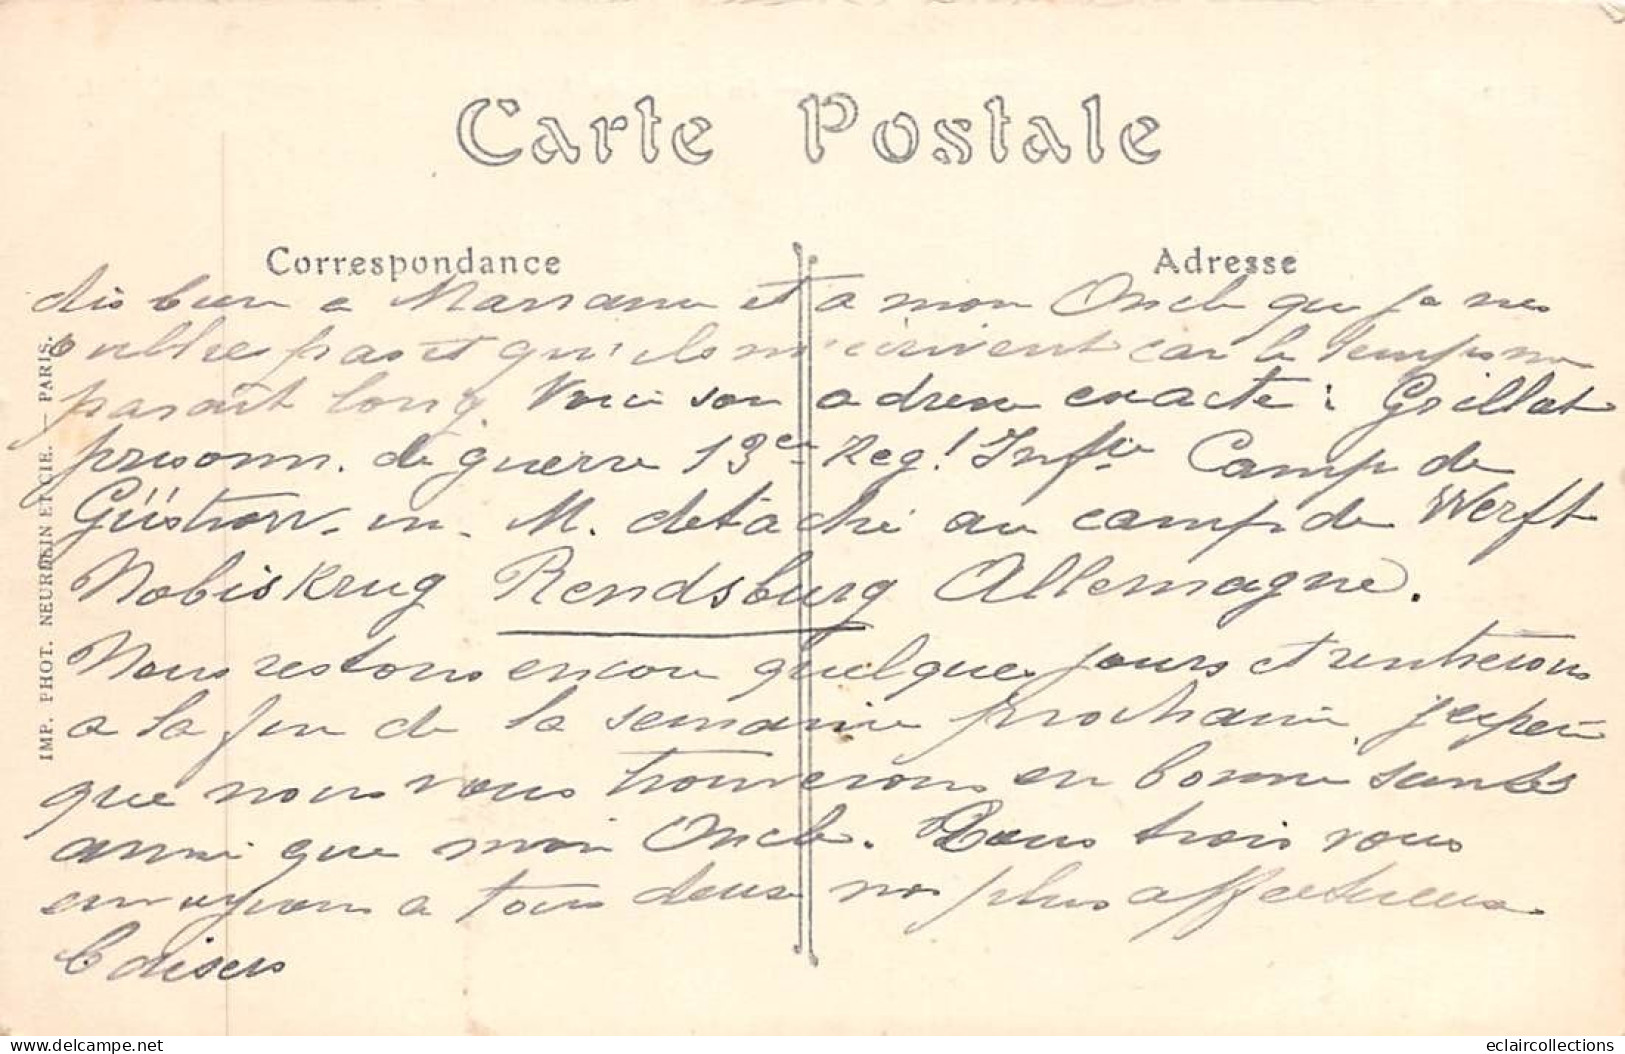 Carte Postale
Correspondance
Adresse
dis bien a Marraine et a mon Oncle que je ne les
oublies pas et qu'ils m'écrivent car le temps me
parait long. Voici son adresse exacte : Grillat
prisonn. de guerre 13e Reg! Inftie Camp de
Güstrow. in. M. detaché au camp de Werft
Nobiskrug Rendsburg Allemagne.
Nous restons encore quelques jours et rentrerons
a la fin de la semaine prochaine, j'espère
que nous vous trouverons en bonne santes
ainsi que mon Oncle. Tous trois vous
envoyons a tous deux nos plus affectueux
baisers
IMP. PHOT. NEURDEIN ET CIE. — PARIS.
www.delcampe.net
eclaircollections